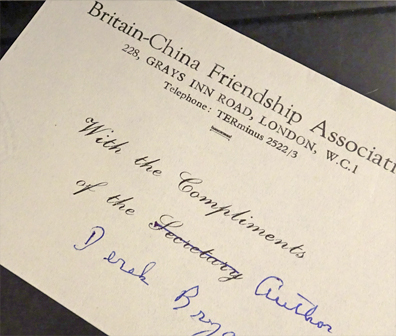 Britain-China Friendship
228, GRAYS INN ROAD, LONDON, W.C.1
Telephone: TERminus 2522/3
With the Compliments
of the Secretary Author
Derek